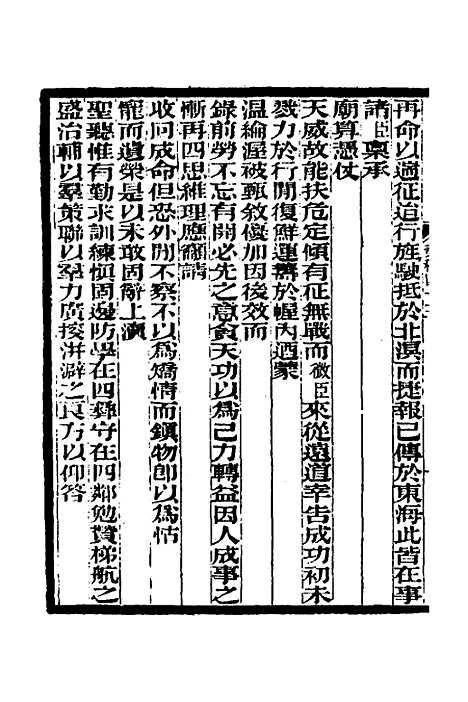 再命以遄征迨行旌駛抵於北溟而捷報已傳於東海此皆在事
諸臣稟承
廟算憑仗
天威故能扶危定傾有征無戰而微臣來從遠道幸告成功初未
戮力於行間復鮮運籌於幄內迺蒙
溫綸渥被甄敘優加因後效而
錄前勞不忘有開必先之意貪天功以為己力轉益因人成事之
慚再四思維理應瀆請
收回成命但恐外間不察不以為矯情而鎮物卽以為怙
寵而遺榮是以未敢固辭上瀆
聖聽惟有勤求訓練慎固邊防學在四彝守在四鄰勉贊梯航之
盛治輔以羣策聯以羣力廣挍洴澼之良方以仰答